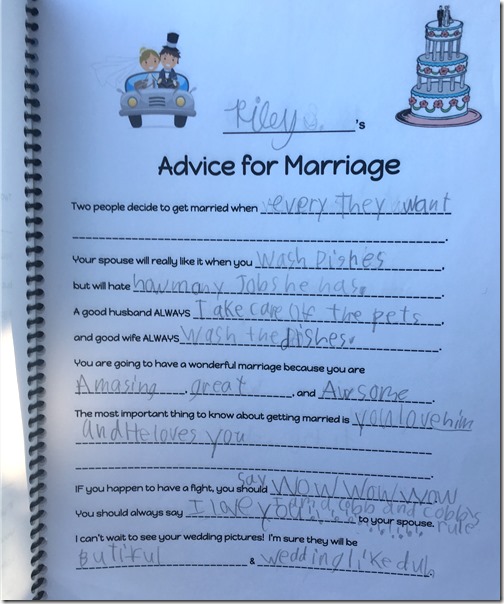 Riley 's
Advice for Marriage
Two people decide to get married when every they want
.
Your spouse will really like it when you Wash Dishes,
but will hate how many Jobs he has.
A good husband ALWAYS Take care of the pets,
and good wife ALWAYS Wash the dishes.
You are going to have a wonderful marriage because you are
Amasing, great, and Awsome.
The most important thing to know about getting married is you love him
and He loves you
.
IF you happen to have a fight, you should say WOW WOW WOW
You should always say I love you I am a cobb and cobbs rule to your spouse.
I can't wait to see your wedding pictures! I'm sure they will be
Butiful & wedding like